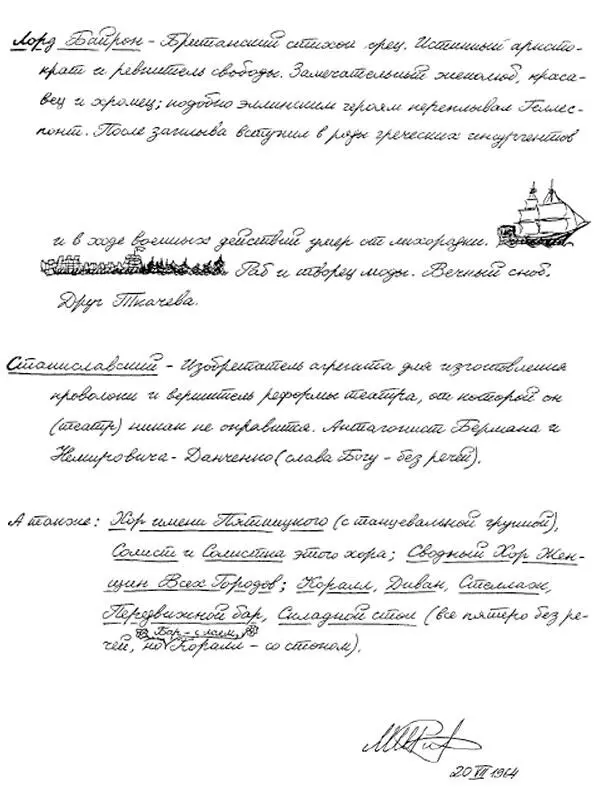 Лорд Байрон - Британский стихой грец. Истинный аристо-
крат и ревнитель свободы. Замечательный женолюб, краса-
вец и хромец; подобно эллинским героям переплывал Геллес-
понт. После заплыва вступил в ряды греческих инсургентов
и в ходе военных действий умер от лихорадки.
Раб и творец моды. Вечный сноб.
Друг Ткачева.
Станиславский - Изобретатель агрегата для изготовления
проволоки и вершитель реформы театра, от которой он
(театр) никак не оправится. Антагонист Бермана и
Немировича-Данченко (слава Богу - без речей).
А также: Хор имени Пятницкого (с танцевальной группой),
Солист и Солистка этого хора; Сводный Хор Жен-
щин Всех Городов; Коралл, Диван, Стеллаж,
Передвижной бар, Складной стол (все пятеро без ре-
Бар - с лаем,
чей, но Коралл - со стоном).
20 VII 1964